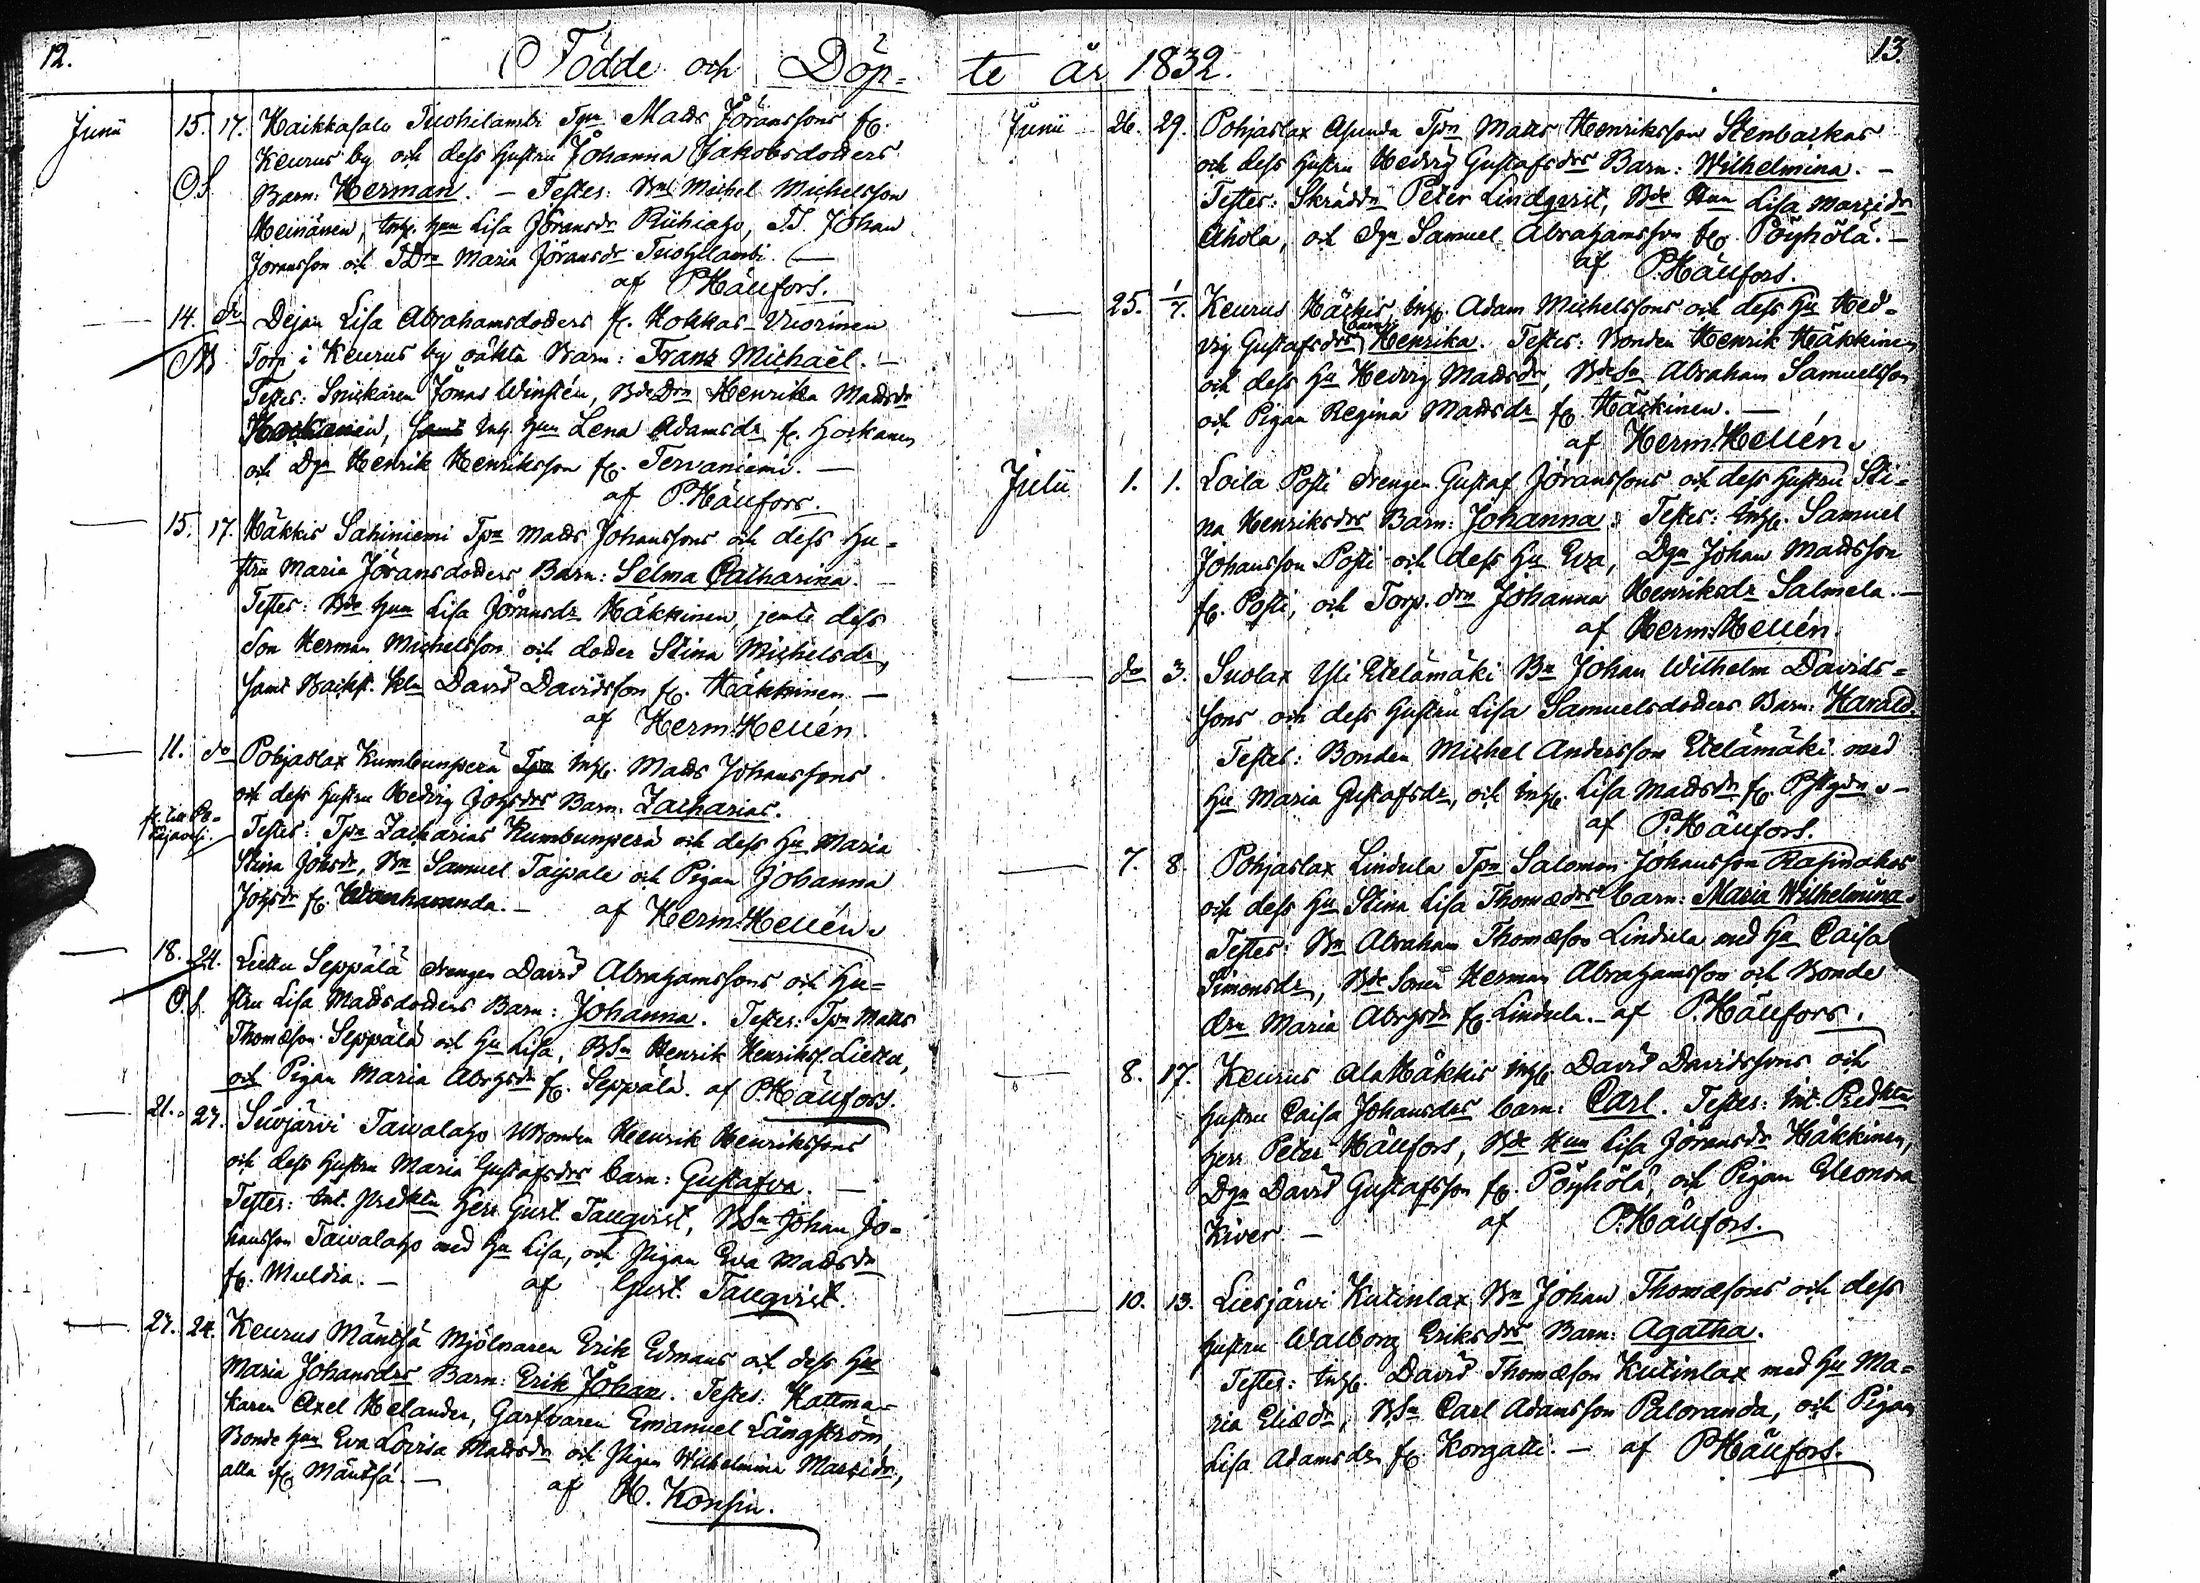 12.
Födde och Döp=
Junii 15. 17. Haikkasalo Tuohilambi Tpn Matts Jöranssons fr.
Keurus by och dess hustru Johanna Jakobsdotters
Barn: Herman. – Testes: Bn Michel Michelsson
Meinänen, Inh. hun Lisa Jöransdr Riihiaho, TS. Johan
Joransson och TDrn Maria Jöransdr Tuohilambi. –
af P. Hällfors.
14. do Dejan Lisa Abrahamsdotters fr. Kokkas-Vuorinen
Torp i Keurus by oäkta Barn: Frans Michaël. –
Testes: Snickaren Jonas Winstén, BdeDrn Henrika Mattsdr
Inh. hun Lena Adamsdr fr.
och Dgn Henrik Henriksson fr. Tervaniemi. –
af P. Hällfors.
15. 17. Häkkis Sahiniemi Tpn Matts Johanssons och dess Hu=
stru Maria Jöransdotters Barn: Selma Catharina. –
Testes: Bde hun Lisa Jöransdr Häkkinen, jemte dess
Son Herman Michelsson och dotter Stina Michelsdr,
samt David Davidsson fr. Häkkinen –
af Herm. Hellén.
11. do Pohjaslax Kumbunperä Inh. Matts Johanssons
och dess hustru Hedvig Johsdrs Barn: Zacharias.
Testes: Tpn Zacharias Kumbunperä och dess Hu Maria
Stina Johsdr, Bn Samuel Taipale och Pigan Johanna
Johsdr fr.
af Herm. Hellén.
18. 24. Liettu Seppälä drengen David Abrahamssons och Hu=
O.S. stru Lisa Mattsdotters Barn: Johanna. Testes: Tpn Matts
Thomæson Seppälä och Hu Lisa, BSn Henrik Henrikss. Liettu,
och Pigan Maria Abrhsdr fr. Seppälä. af P. Hällfors.
21. 27. Suojärvi Taivalaho Bonden Henrik Henrikssons
och dess Hustru Maria Gustafsdrs barn: Gustafva. –
Testes: Herr Gust. Tallqvist, BSn Johan Jo=
hansson Taivalaho med Hu Lisa, och Pigan Eva Mattsdr
fr. Muldia. –
af Gust. Tallqvist.
24. Keurus Mäntsä Mjölnaren Erik Edmans och dess Hu
Maria Johansdrs Barn: Erik Johan. Testes: Hattma=
karen Axel Helander, Garfvaren Emanuel Långström,
Bonde hun Eva Lovisa Mattsdr och Pigan Wilhelmina
alla fr. Mäntsä. –
af H. Konsin.
13.
te år 1832.
Junii 26. 29. Pohjaslax Asunda Tpn Matts Henriksson Stenbackas
och dess hustru Hedvig Gustafsdrs Barn: Wilhelmina. –
Testes: Skräddn Peter Lindqvist, Bde Hun Lisa
Ahola, och Dgn Samuel Abrahamsson fr. Pöyhölä. –
af P. Hällfors.
25. 1/7. Keurus Häkkis, Inh. Adam Michelssons och dess Hu Hed=
vig Gustafsdrs barn Henrika. Testes: Bonden Henrik Häkkinen
och dess Hu Hedvig Mattsdr, BdeSn Abraham Samuelsson
och Pigan Regina Mattsdr fr. Häkkinen. –
af Herm. Hellén.
Julii 1. 1. Loila Posti drengen Gustaf Jöranssons och dess hustru Sti=
na Henriksdrs Barn: Johanna. Testes: Inh. Samuel
Johansson Posti och dess Hu Eva, Dgn Johan Mattsson
fr. Posti, och Torp. drn Johanna Henriksdr Salmela. –
af Herm. Hellén.
do 3. Suolax Yli Etelämäki Bn Johan Wilhelm Davids=
sons och dess hustru Lisa Samuelsdotters Barn: Harald.
Testes: Bonden Michel Andersson Etelämäki med
Hu Maria Gustafsdr, och Inh. Lisa Mattsdr fr.
af P. Hällfors.
7. 8. Pohjaslax Lindula Tpn Salomon Johansson
och dess Hu Stina Lisa Thomædrs barn: Maria Wilhelmina.
Testes: Bn Abraham Thomæson Lindula med Hu Caisa
Simonsdr, Bde Sonen Herman Abrahamsson och Bonde
drn Maria Abrhsdr fr. Lindula. – af P. Hällfors.
8. 17. Keurus AlaHäkkis Inh. David Davidssons och
hustru Caisa Johansdrs barn: Carl. Testes:
Herr Peter Hällfors, Bde Hun Lisa Jöransdr Häkkinen,
Dgn David Gustafsson fr. Pöyhölä, och Pigan Eleonora
Kiver –
af P. Hällfors.
10. 13. Liesjärvi Kutinlax Bn Johan Thomæsons och dess
hustru Walborg Eriksdrs Barn: Agatha.
Testes: Inh. David Thomæson Kutinlax med Hu Ma=
ria Eliædr, BSn Carl Adamsson Paloranda, och Pigan
Lisa Adamsdr fr. Korgatti. – af P. Hällfors.